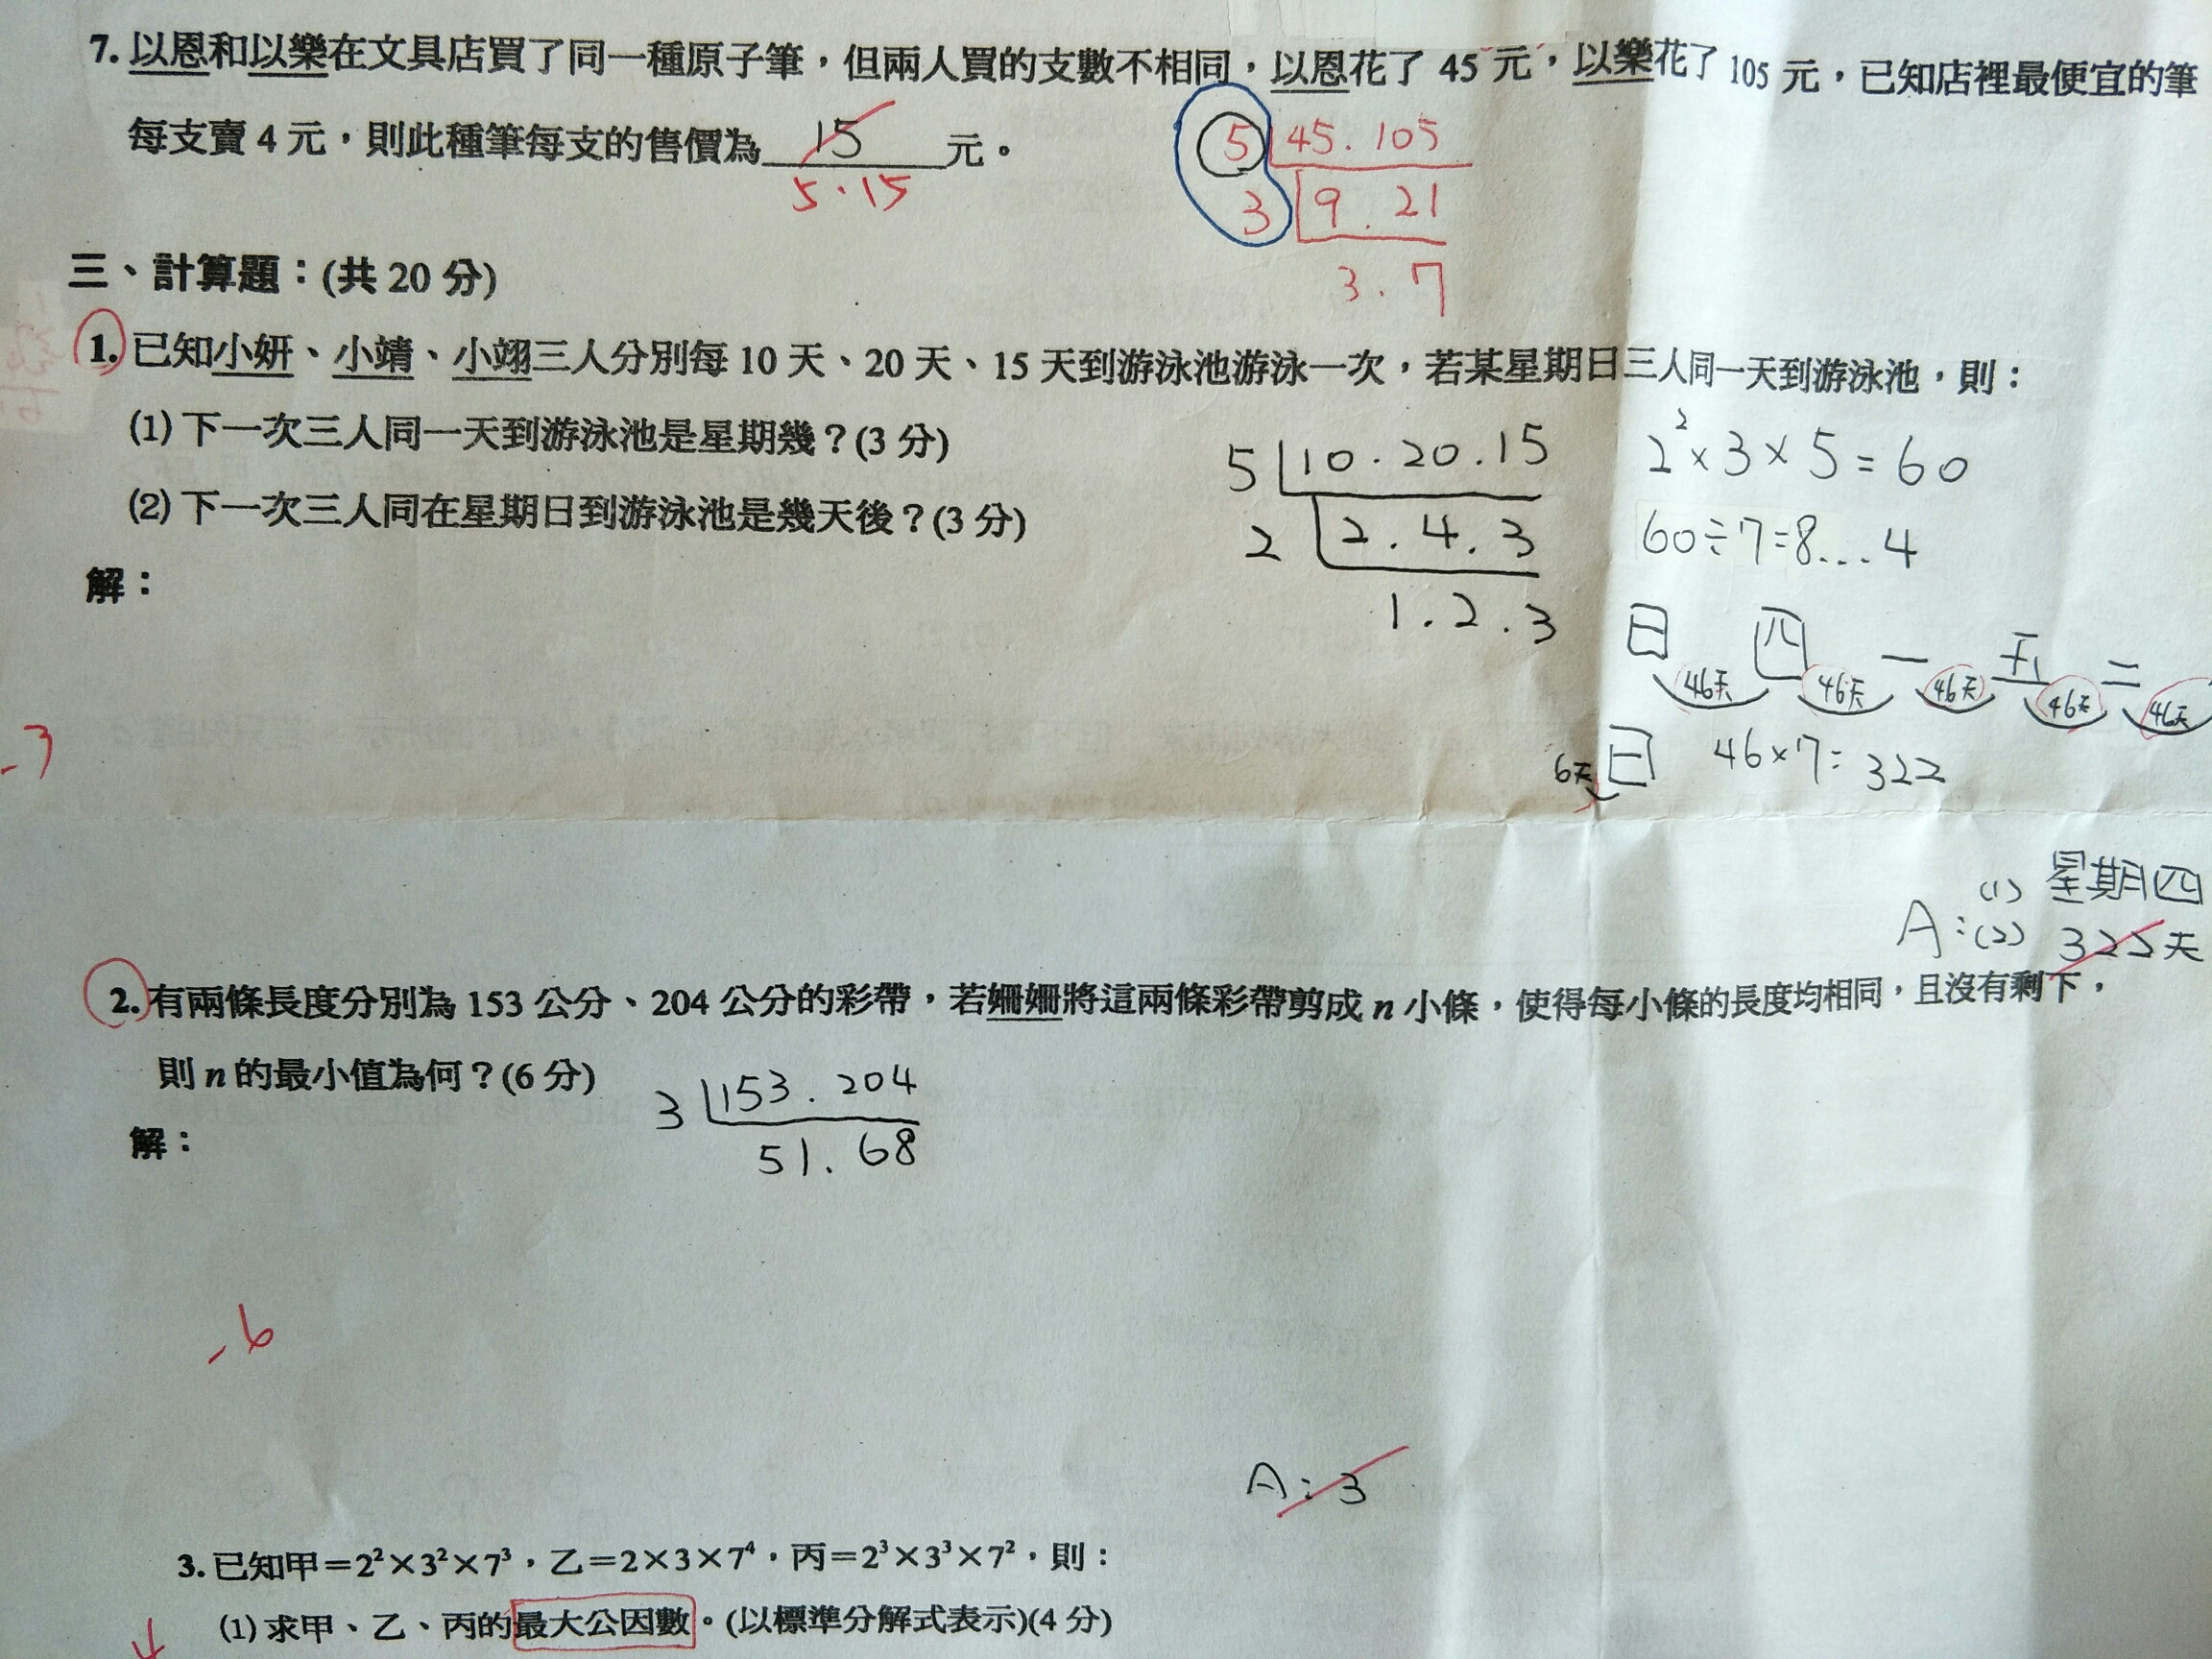 7. 以恩和以樂在文具店買了同一種原子筆，但兩人買的支數不相同，以恩花了 45 元，以樂花了 105 元，已知店裡最便宜的筆
每支賣 4 元，則此種筆每支的售價為 15 元。
5.15
5 45. 105
3 9. 21
3. 7
三、計算題：(共 20 分)
1. 已知小妍、小靖、小翊三人分別每 10 天、20 天、15 天到游泳池游泳一次，若某星期日三人同一天到游泳池，則：
(1) 下一次三人同一天到游泳池是星期幾？(3 分)
(2) 下一次三人同在星期日到游泳池是幾天後？(3 分)
解：
5 10. 20. 15
2 2. 4. 3
1. 2. 3
2² × 3 × 5 = 60
60÷7=8...4
日 四 一 五 二
46天 46天 46天 46天 46天
6天 日 46×7= 322
-3
A: (1) 星期四
(2) 322天
2. 有兩條長度分別為 153 公分、204 公分的彩帶，若姍姍將這兩條彩帶剪成 n 小條，使得每小條的長度均相同，且沒有剩下，
則 n 的最小值為何？(6 分)
解：
3 153. 204
51. 68
-6
A: 3
3. 已知甲＝2²×3²×7³，乙＝2×3×7⁴，丙＝2³×3³×7²，則：
(1) 求甲、乙、丙的最大公因數。(以標準分解式表示)(4 分)